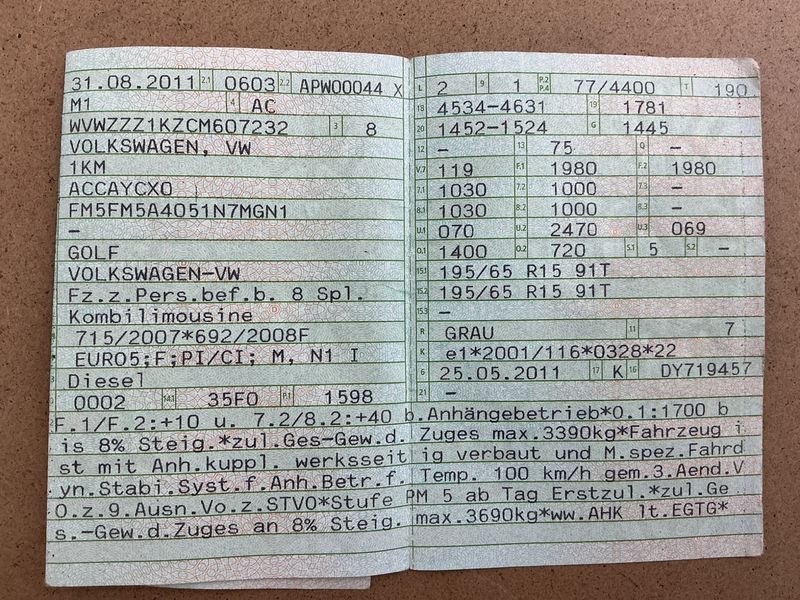 31.08.2011 2.1 0603 2.2 APW00044 X
M1 4 AC
WVWZZZ1KZCM607232 3 8
VOLKSWAGEN, VW
1KM
ACCAYCX0
FM5FM5A4051N7MGN1
–
GOLF
VOLKSWAGEN-VW
Fz.z.Pers.bef.b. 8 Spl.
Kombilimousine
715/2007*692/2008F
EURO5;F;PI/CI; M, N1 I
Diesel
0002 14.1 35F0 P.1 1598
L 2 9 1 P.2 P.4 77/4400 T 190
18 4534-4631 19 1781
20 1452-1524 G 1445
12 – 13 75 Q –
V.7 119 F.1 1980 F.2 1980
7.1 1030 7.2 1000 7.3 –
8.1 1030 8.2 1000 8.3 –
U.1 070 U.2 2470 U.3 069
O.1 1400 O.2 720 S.1 5 S.2 –
15.1 195/65 R15 91T
15.2 195/65 R15 91T
15.3 –
R GRAU 11 7
K e1*2001/116*0328*22
6 25.05.2011 17 K 16 DY719457
21 –
F.1/F.2:+10 u. 7.2/8.2:+40 b.Anhängebetrieb*O.1:1700 b
is 8% Steig.*zul.Ges-Gew.d. Zuges max.3390kg*Fahrzeug i
st mit Anh.kuppl. werksseit ig verbaut und M.spez.Fahrd
yn.Stabi.Syst.f.Anh.Betr.f. Temp. 100 km/h gem.3.Aend.V
O.z.9.Ausn.Vo.z.STVO*Stufe PM 5 ab Tag Erstzul.*zul.Ge
s.-Gew.d.Zuges an 8% Steig. max.3690kg*ww.AHK lt.EGTG*